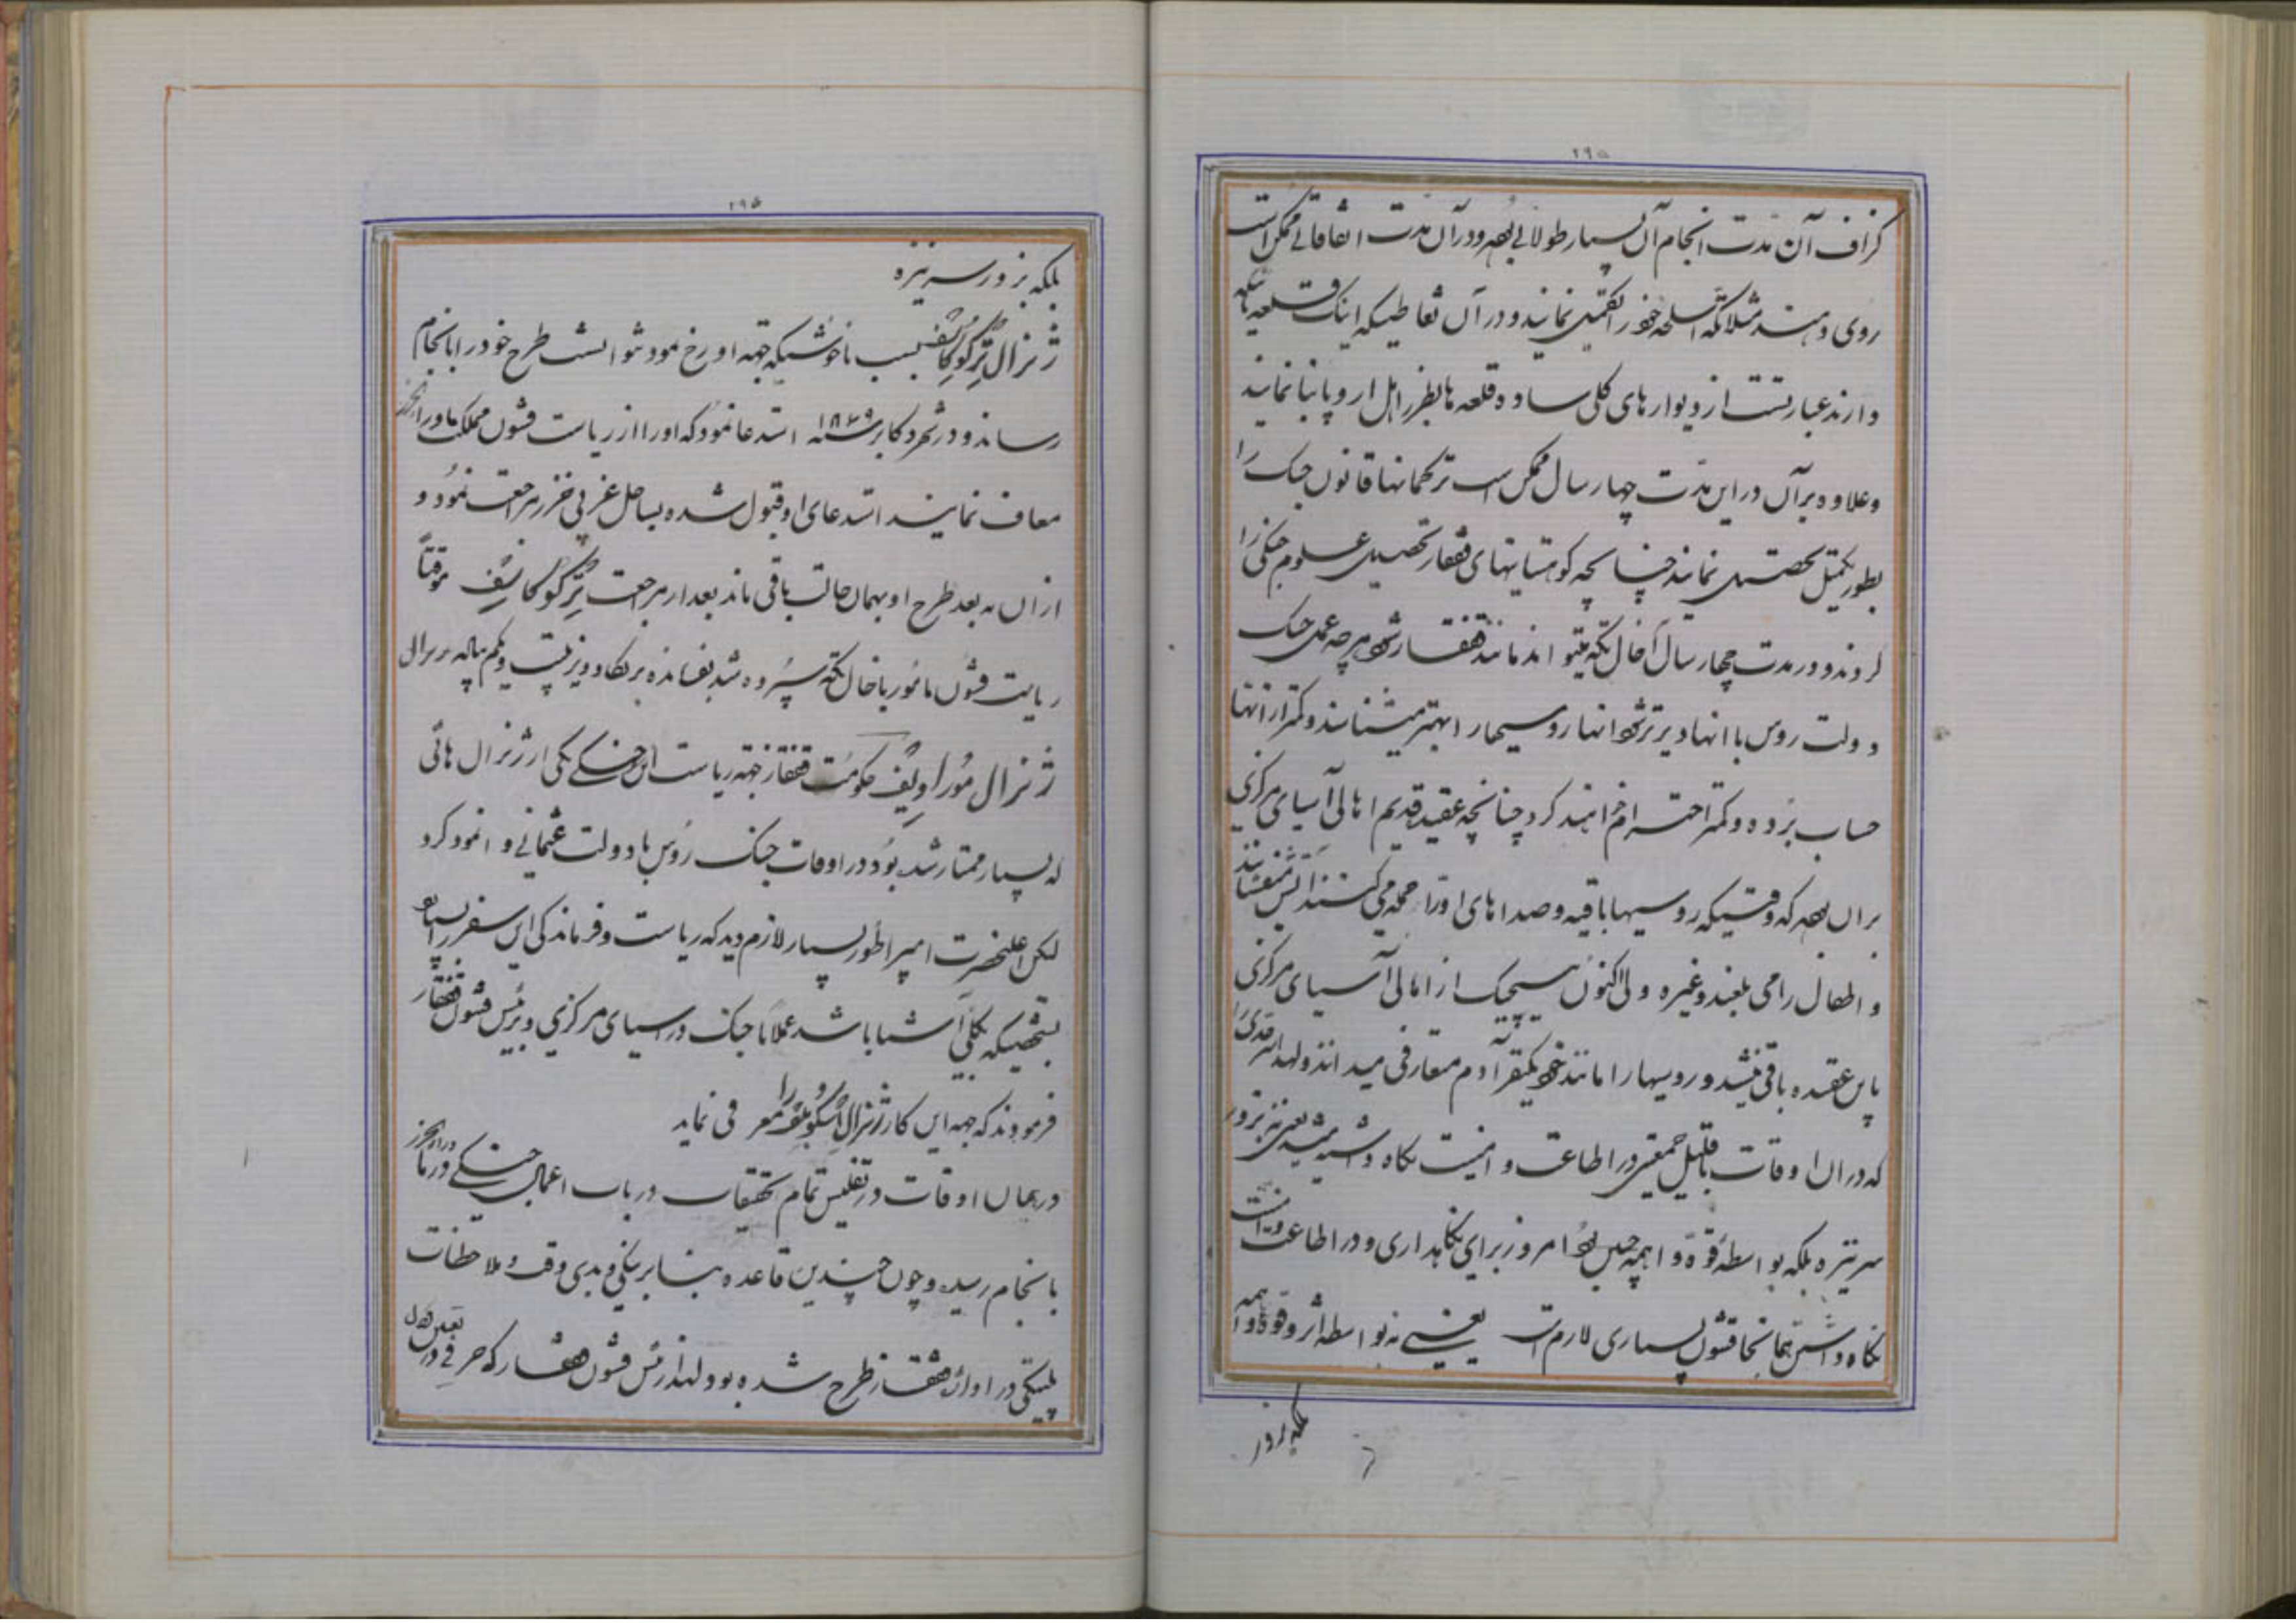 ۲۹۵
گزاف آن مدت انجام آن بسیار طولانی بوده و در آن مدت اتفاقاتی ممکن است
روی دهند مثلا تکه اسلحه خود را تکمیل نمایند و در آن نقاطیکه اینک قلعه
دارند عبارتست از دیوارهای گلی ساده قلعه ها بطرز اهل اروپا بنا نمایند
و علاوه برآن در این مدت چهار سال ممکن است ترکمانها قانون جنک را
بطور تکمیل تحصیل نمایند چنانچه کوهستانیهای قفقاز تحصیل علوم جنکی را
کردند و در مدت چهار سال آخال تکه میتواند مانند قفقاز شود هر چه عمل جنک
دولت روس با انها دیرتر شود انها روسیها را بهتر میشناسند و کمتر از انها
حساب برده و کمتر احترام خواهند کرد چنانچه عقیده قدیم اهالی آسیای مرکزی
بر آن بود که وقتیکه روسیها با قیه و صداهای اورا حمله می کنند
و اطفال را می بلعند و غیره ولی اکنون هیچیک از اهالی آسیای مرکزی
باین عقیده باقی نیستند و روسیها را مانند خود یکنفر آدم متعارفی میدانند و لهذا
که در آن اوقات با قلیل جمعیتی در اطاعت و امنیت نکاه داشته میشدند یعنی نه بزور
سر نیزه بلکه بواسطه قوه واهمه چنین بود امروز برای نکاهداری و در اطاعت و امنیت
نکاه داشتن همانجا قشون بسیاری لازم است یعنی نه بواسطه اثر و قوه واهمه
بلکه بزور
۲۹۵
بلکه بزور سر نیزه
ژنرال ترگوکاسف بسبب ناخوشیکه جهة او رخ نمود نتوانست طرح خود را بانجام
رساند و در شهر دکابر سنه ۱۸۷۹ استدعا نمود که او را از ریاست قشون مملکت ماوراء خزر
معاف نمایند استدعای او قبول شده بساحل غربی خزر مراجعت نمود و
از ان به بعد طرح او بهمان حالت باقی ماند بعد از مراجعت ترگوکاسف موقتاً
ریاست قشون مامور باخال تکه سپرده شد بفرمانده بریکاد دویزیت و یکم پیاده ژنرال
ژنرال مورا ویف حکومت قفقاز جهة ریاست این جنک یکی از ژنرال هائی
که بسیار ممتاز شده بود در اوقات جنک روس با دولت عثمانی وانمود کرد
لکن اعلیحضرت امپراطور بسیار لازم دید که ریاست و فرماندکی این سفر را
بشخصیکه بکلی آشنا باشد عملاً با جنک در اسیای مرکزی و برئیس قشون قفقاز
فرمودند که جهة این کار ژنرال اسکوبلف را معرفی نماید
در همان اوقات در تفلیس تمام تحقیقات در باب اعمال جنکی در ماوراء خزر
بانجام رسید و چون چندین قاعده بنا بر نیکی و بدی وقت و ملاحظات
پلتیکی در اوائل قفقاز طرح شده بود لهذا رئیس قشون قفقاز که حرفی در